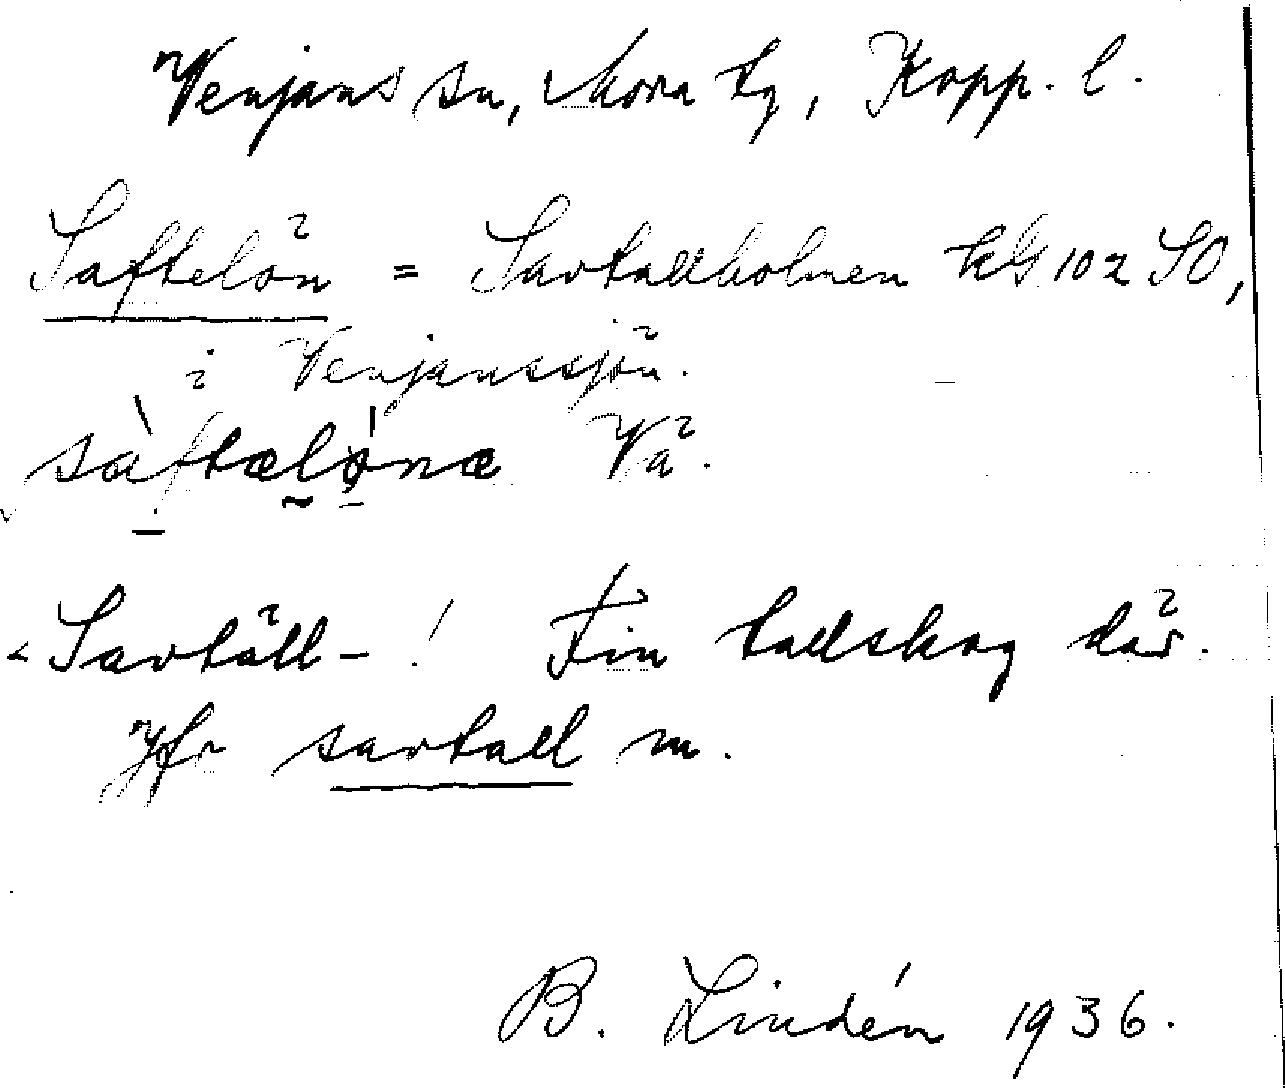 Venjans sn, Mora tg, Kopp. l.
Saftelön = Savtallholmen kG 102 SO,
i Venjanssjön.
sàftælǫ́næ Vä.
< Savtäll- ! Fin tallskog där.
Jfr savtall m.
B. Lindén 1936.